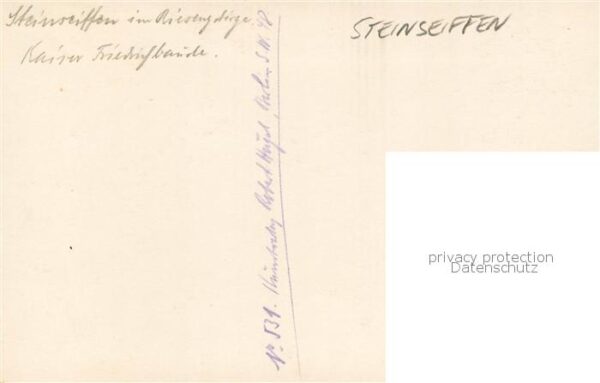 Steinseiffen im Riesengebirge.
Kaiser Friedrichbaude.
STEINSEIFFEN
No 531. Kunstverlag Robert Berlin S.W. 42
privacy protection
Datenschutz